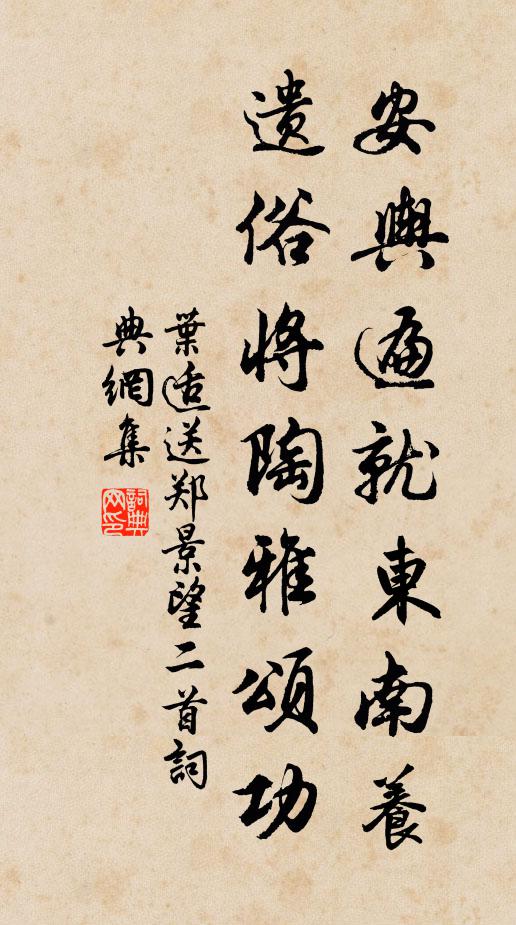 安輿遍就東南養
遺俗將陶雅頌功
葉适送郑景望二首詞
典網集
詞典
网印